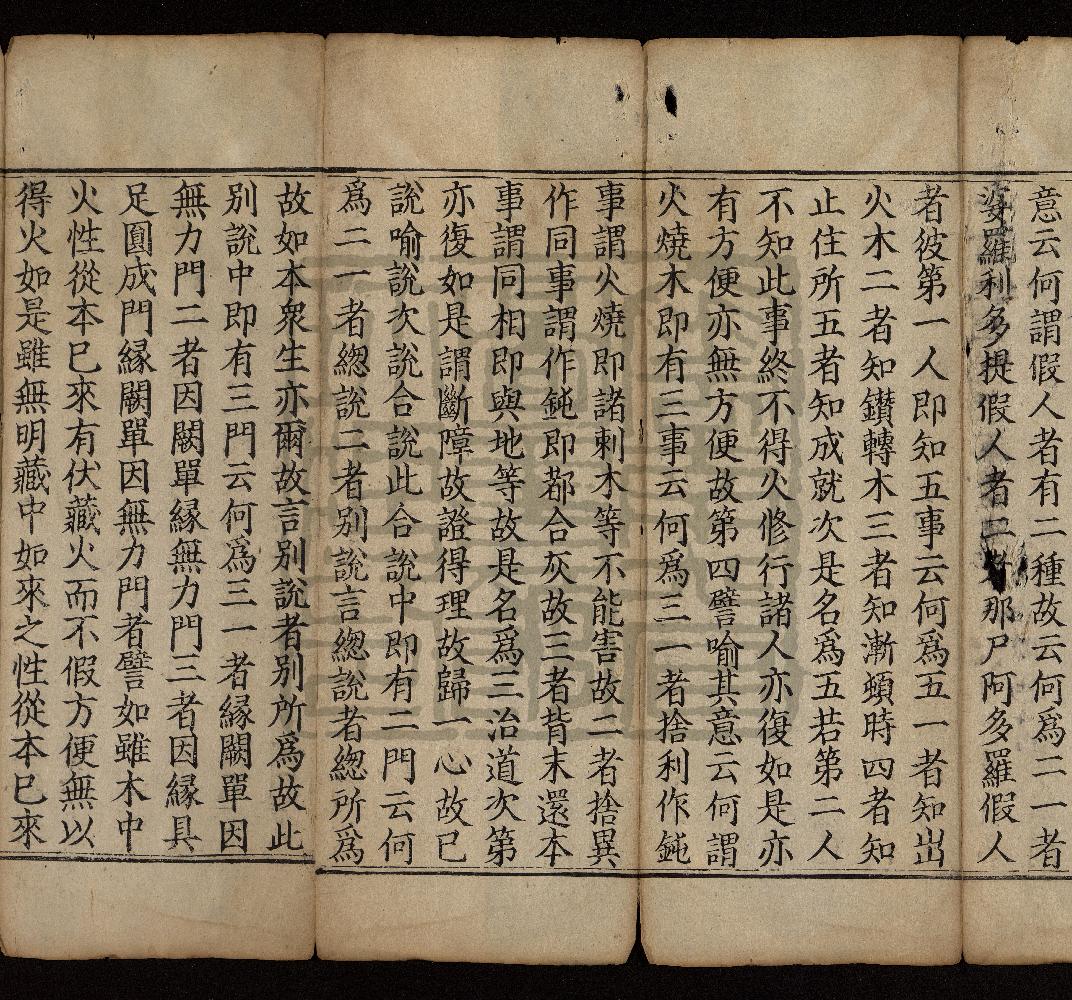 意云何謂假人者有二種故云何爲二一者
婆羅利多提假人者二者那尸阿多羅假人
者彼第一人即知五事云何爲五一者知出
火木二者知鑚轉木三者知漸頓時四者知
止住所五者知成就次是名爲五若第二人
不知此事終不得火修行諸人亦復如是亦
有方便亦無方便故第四譬喻其意云何謂
火燒木即有三事云何爲三一者捨利作鈍
事謂火燒即諸刺木等不能害故二者捨異
作同事謂作鈍即都合灰故三者背末還本
事謂同相即與地等故是名爲三治道次第
亦復如是謂斷障故證得理故歸一心故已
說喻說次說合說此合說中即有二門云何
爲二一者總說二者别說言總說者總所爲
故如本衆生亦爾故言别說者别所爲故此
别說中即有三門云何爲三一者緣闕單因
無力門二者因闕單緣無力門三者因緣具
足圓成門緣闕單因無力門者譬如雖木中
火性從本已來有伏藏火而不假方便無以
得火如是雖無明藏中如來之性從本已來